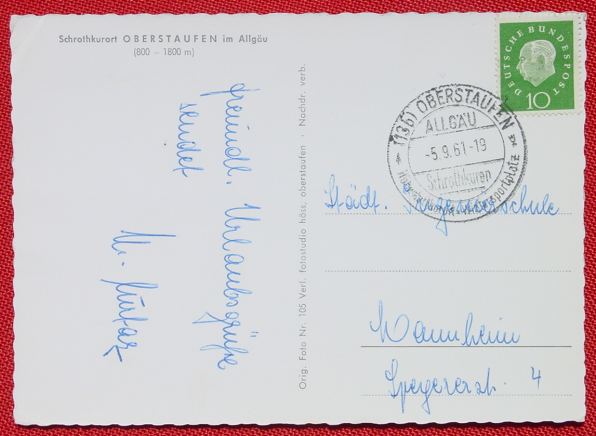 Schrothkurort OBERSTAUFEN im Allgäu
(800 – 1800 m)
freundl. Urlaubsgrüße
sendet
Orig. Foto Nr. 105 Verl. fotostudio höss, oberstaufen · Nachdr. verb.
DEUTSCHE BUNDESPOST
10
(13b) OBERSTAUFEN
ALLGÄU
-5.9.61-19
Schrothkuren
Städt.
Mannheim
Speyererstr. 4